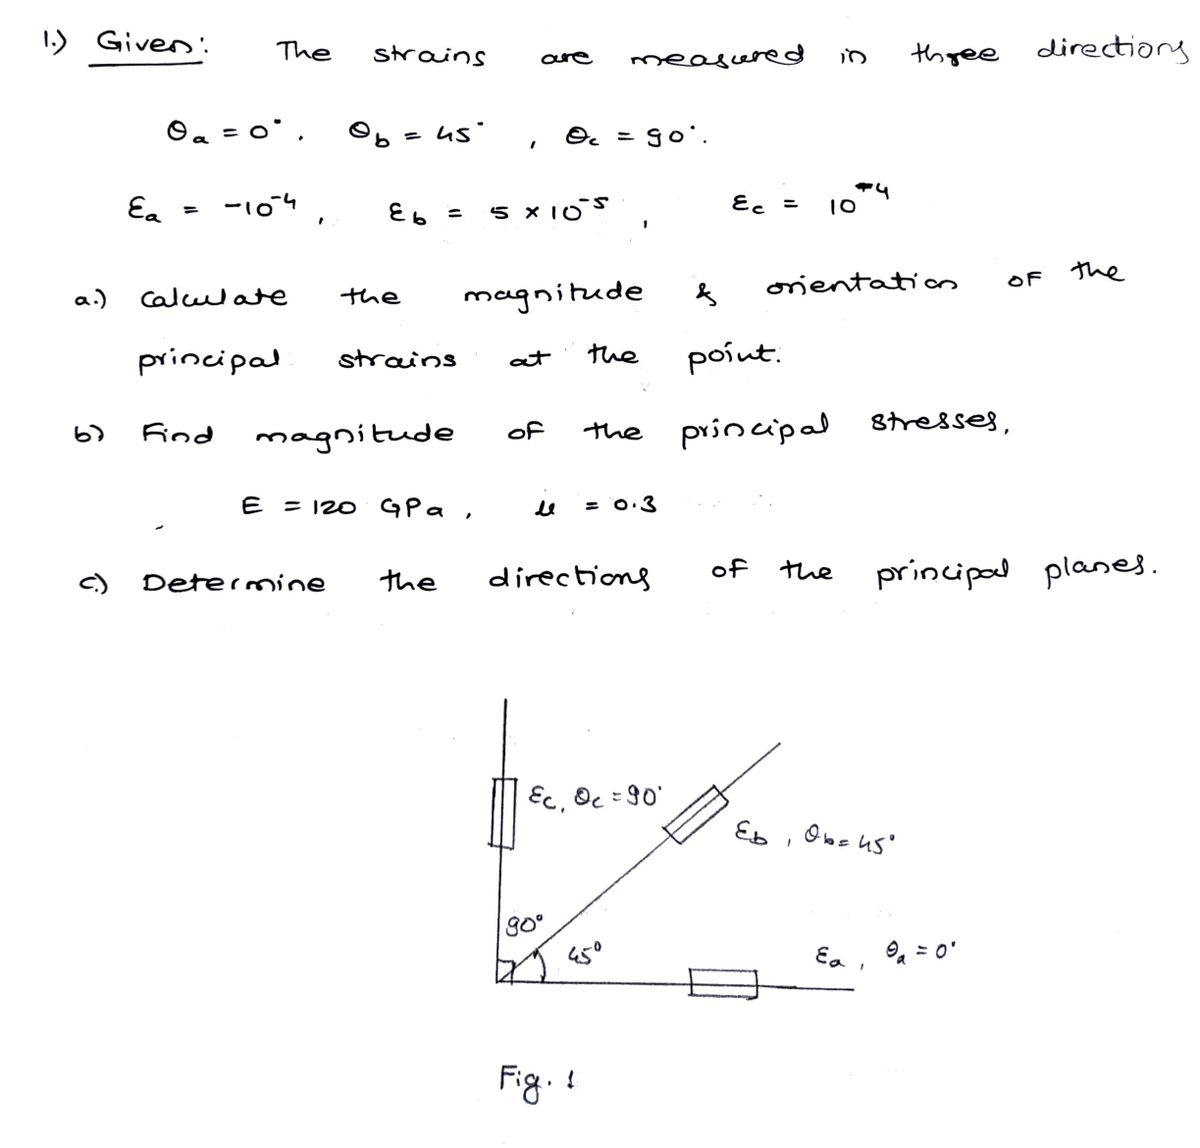 1.) Given: The strains are measured in three directions
θa = 0°, θb = 45°, θc = 90°.
εa = -10⁻⁴, εb = 5 × 10⁻⁵, εc = 10⁻⁴
a.) Calculate the magnitude & orientation of the
principal strains at the point.
b) Find magnitude of the principal stresses,
E = 120 GPa, μ = 0.3
c.) Determine the directions of the principal planes.
εc, θc = 90°
εb, θb = 45°
90°
45°
εa, θa = 0°
Fig. 1